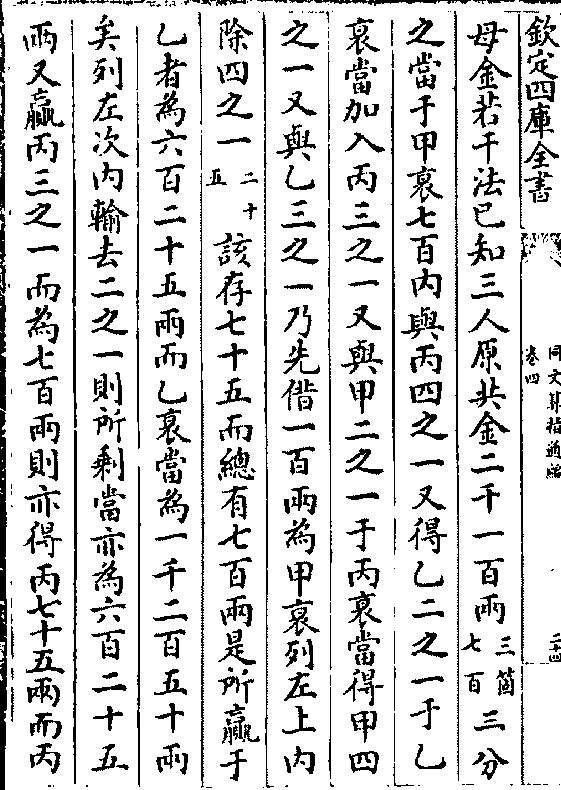 欽定四庫全書
同文算指通編
卷四
二十四
母金若干法已知三人原共金二千一百兩三箇七百三分
之當于甲裒七百内與丙四之一又得乙二之一于乙
裒當加入丙三之一又與甲二之一于丙裒當得甲四
之一又與乙三之一乃先借一百兩為甲裒列左上内
除四之一二十五該存七十五而總有七百兩是所贏于
乙者為六百二十五兩而乙裒當為一千二百五十兩
矣列左次内輸去二之一則所剩當亦為六百二十五
兩又贏丙三之一而為七百兩則亦得丙七十五兩而丙